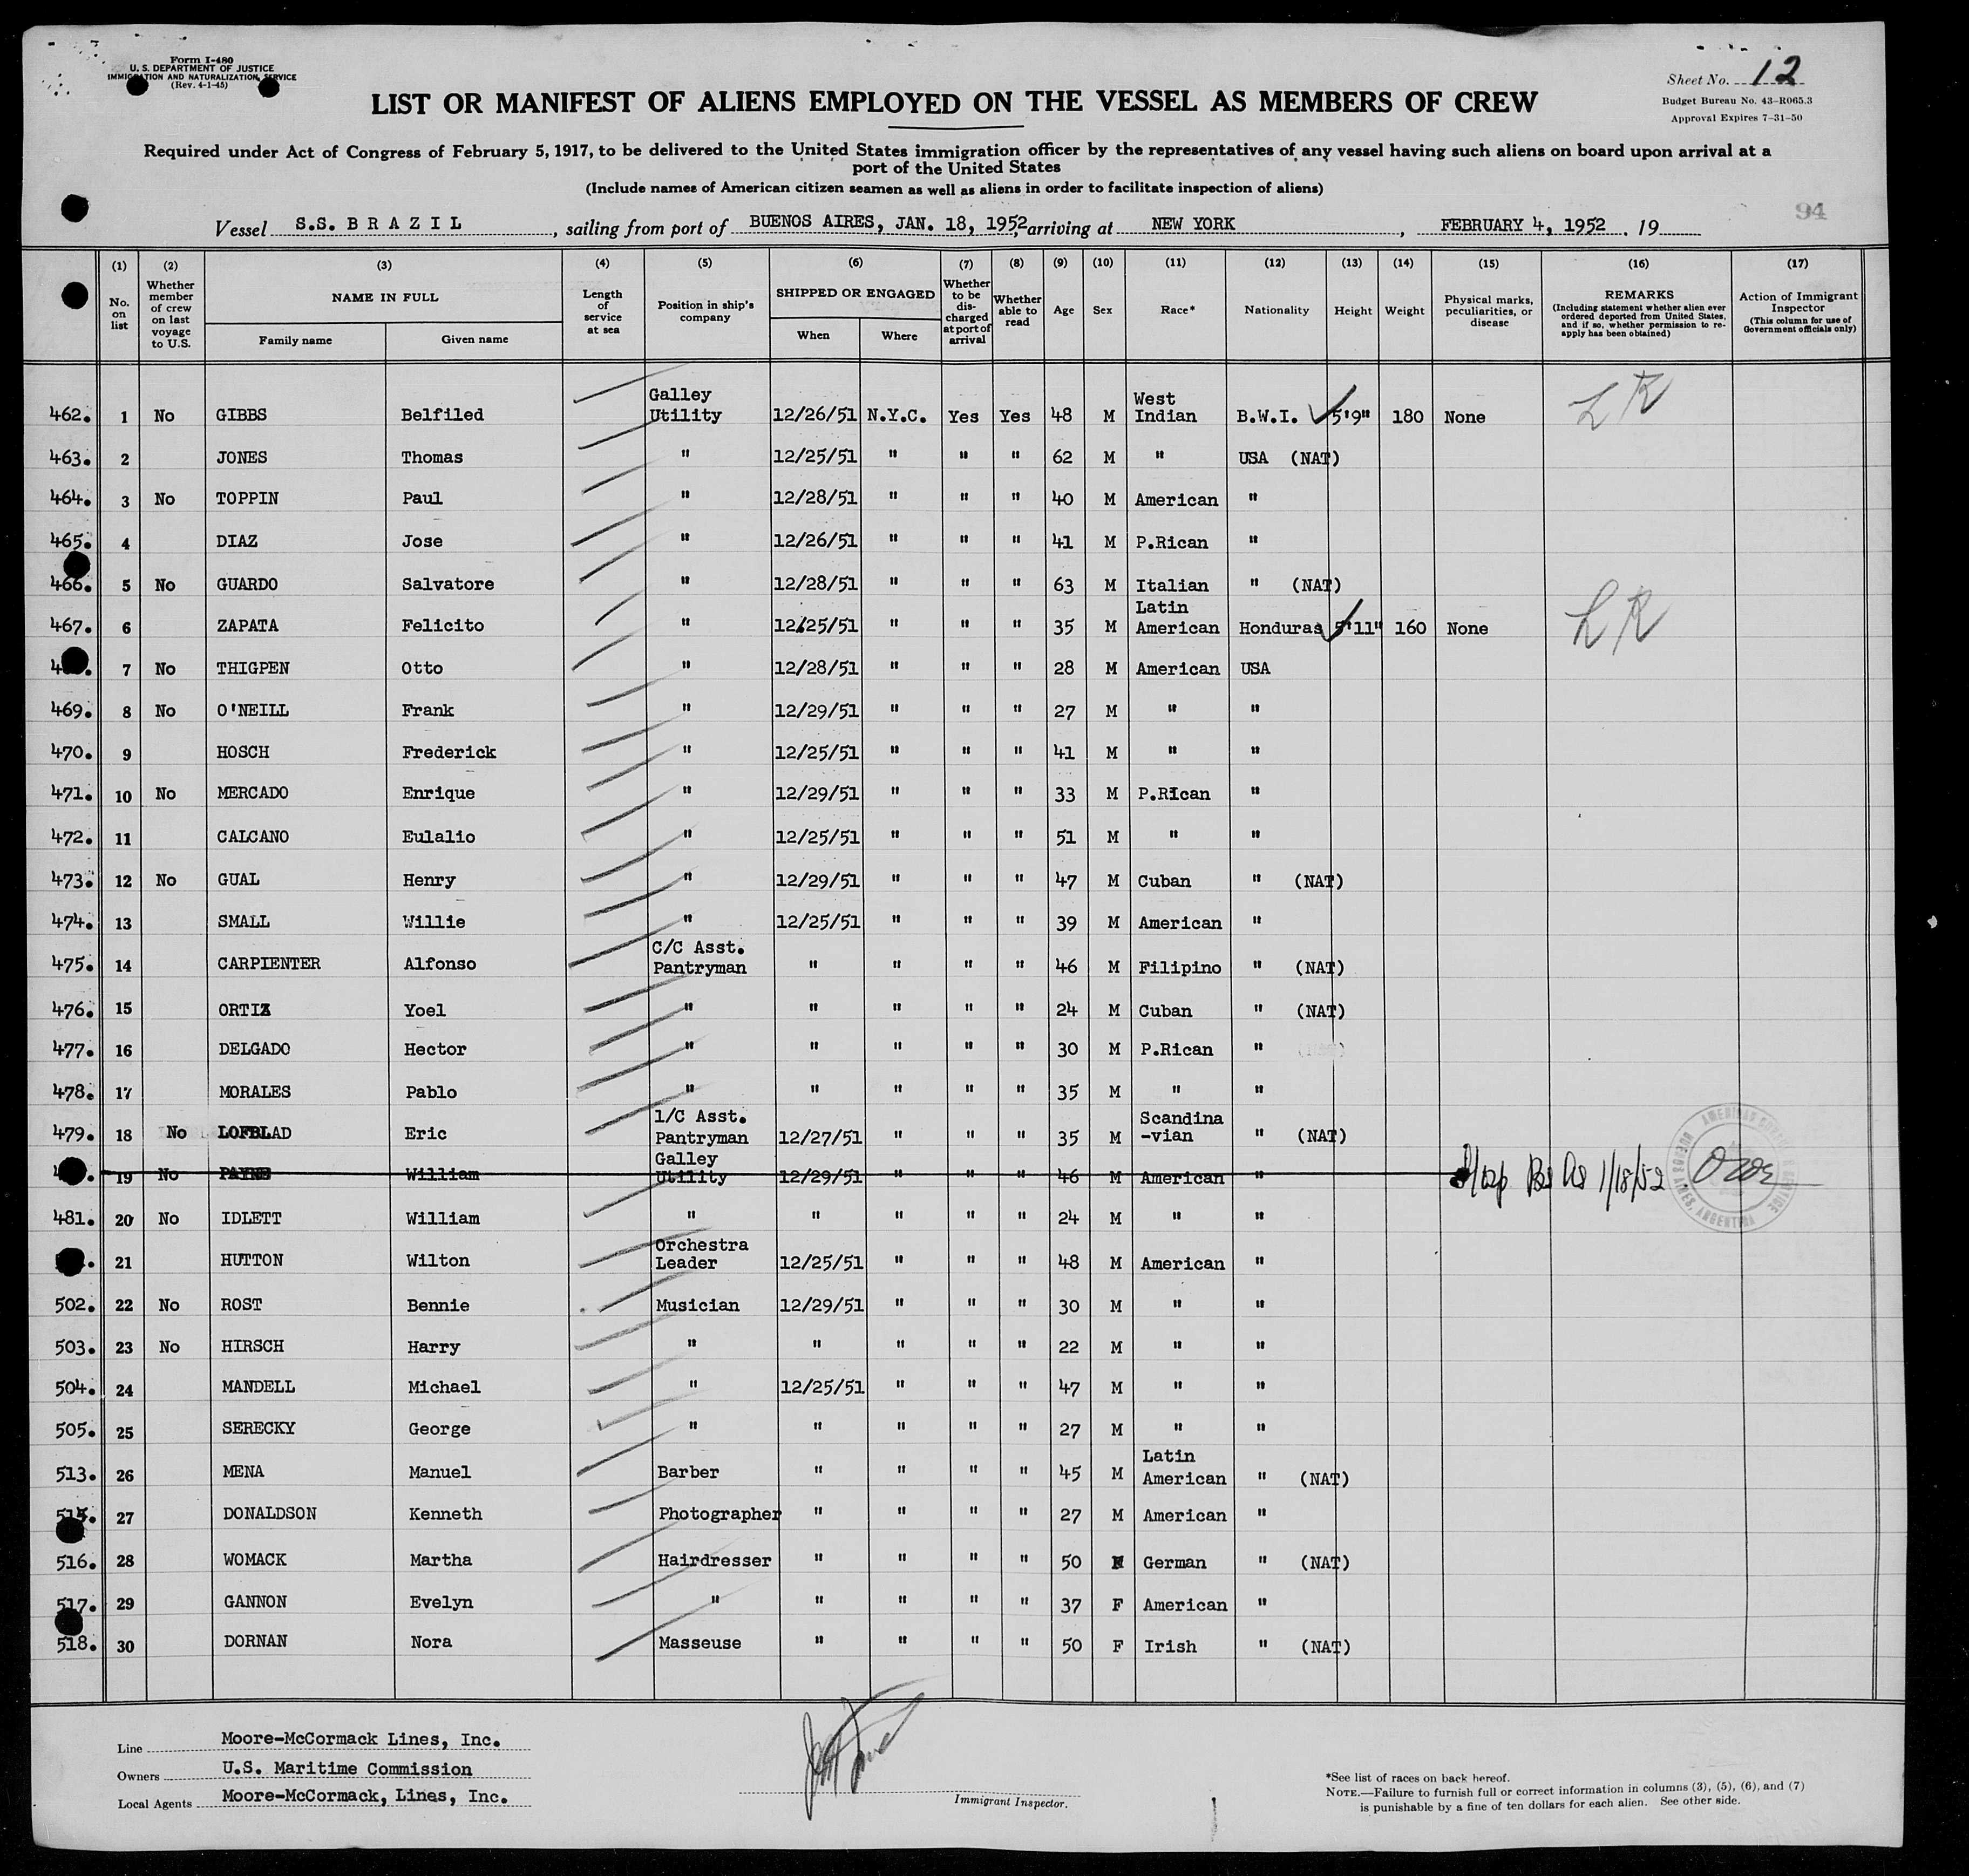 Form I-480
U. S. DEPARTMENT OF JUSTICE
IMMIGRATION AND NATURALIZATION SERVICE
(Rev. 4-1-45)
Sheet No. 12
Budget Bureau No. 43-R065.3
Approval Expires 7-31-50
LIST OR MANIFEST OF ALIENS EMPLOYED ON THE VESSEL AS MEMBERS OF CREW
Required under Act of Congress of February 5, 1917, to be delivered to the United States immigration officer by the representatives of any vessel having such aliens on board upon arrival at a
port of the United States
(Include names of American citizen seamen as well as aliens in order to facilitate inspection of aliens)
94
Vessel S.S. B R A Z I L, sailing from port of BUENOS AIRES, JAN. 18, 1952, arriving at NEW YORK, FEBRUARY 4, 1952, 19
(1) (2) (3) (4) (5) (6) (7) (8) (9) (10) (11) (12) (13) (14) (15) (16) (17)
No. on list
Whether member of crew on last voyage to U.S.
NAME IN FULL
Family name
Given name
Length of service at sea
Position in ship's company
SHIPPED OR ENGAGED
When
Where
Whether to be discharged at port of arrival
Whether able to read
Age
Sex
Race*
Nationality
Height
Weight
Physical marks, peculiarities, or disease
REMARKS
(Including statement whether alien ever ordered deported from United States, and if so, whether permission to reapply has been obtained)
Action of Immigrant Inspector
(This column for use of Government officials only)
462. 1 No GIBBS Belfiled Galley Utility 12/26/51 N.Y.C. Yes Yes 48 M West Indian B.W.I. 5'9" 180 None LR
463. 2 JONES Thomas " 12/25/51 " " " 62 M " USA (NAT)
464. 3 No TOPPIN Paul " 12/28/51 " " " 40 M American "
465. 4 DIAZ Jose " 12/26/51 " " " 41 M P.Rican "
466. 5 No GUARDO Salvatore " 12/28/51 " " " 63 M Italian " (NAT)
467. 6 ZAPATA Felicito " 12/25/51 " " " 35 M Latin American Honduras 5'11" 160 None LR
7 No THIGPEN Otto " 12/28/51 " " " 28 M American USA
469. 8 No O'NEILL Frank " 12/29/51 " " " 27 M " "
470. 9 HOSCH Frederick " 12/25/51 " " " 41 M " "
471. 10 No MERCADO Enrique " 12/29/51 " " " 33 M P.RIcan "
472. 11 CALCANO Eulalio " 12/25/51 " " " 51 M " "
473. 12 No GUAL Henry " 12/29/51 " " " 47 M Cuban " (NAT)
474. 13 SMALL Willie " 12/25/51 " " " 39 M American "
475. 14 CARPIENTER Alfonso C/C Asst. Pantryman " " " " 46 M Filipino " (NAT)
476. 15 ORTIZ Yoel " " " " " 24 M Cuban " (NAT)
477. 16 DELGADO Hector " " " " " 30 M P.Rican "
478. 17 MORALES Pablo " " " " " 35 M " "
479. 18 No LOFBLAD Eric 1/C Asst. Pantryman 12/27/51 " " " 35 M Scandina-vian " (NAT)
19 No PAYNE William Galley Utility 12/29/51 " " " 46 M American " Bs As 1/18/52
AMERICAN BUENOS AIRES, ARGENTINA
481. 20 No IDLETT William " " " " " 24 M " "
21 HUTTON Wilton Orchestra Leader 12/25/51 " " " 48 M American "
502. 22 No ROST Bennie Musician 12/29/51 " " " 30 M " "
503. 23 No HIRSCH Harry " " " " " 22 M " "
504. 24 MANDELL Michael " 12/25/51 " " " 47 M " "
505. 25 SERECKY George " " " " " 27 M " "
513. 26 MENA Manuel Barber " " " " 45 M Latin American " (NAT)
27 DONALDSON Kenneth Photographer " " " " 27 M American "
516. 28 WOMACK Martha Hairdresser " " " " 50 F German " (NAT)
517. 29 GANNON Evelyn " " " " " 37 F American "
518. 30 DORNAN Nora Masseuse " " " " 50 F Irish " (NAT)
Line Moore-McCormack Lines, Inc.
Owners U.S. Maritime Commission
Local Agents Moore-McCormack, Lines, Inc.
Immigrant Inspector.
*See list of races on back hereof.
NOTE.—Failure to furnish full or correct information in columns (3), (5), (6), and (7)
is punishable by a fine of ten dollars for each alien. See other side.